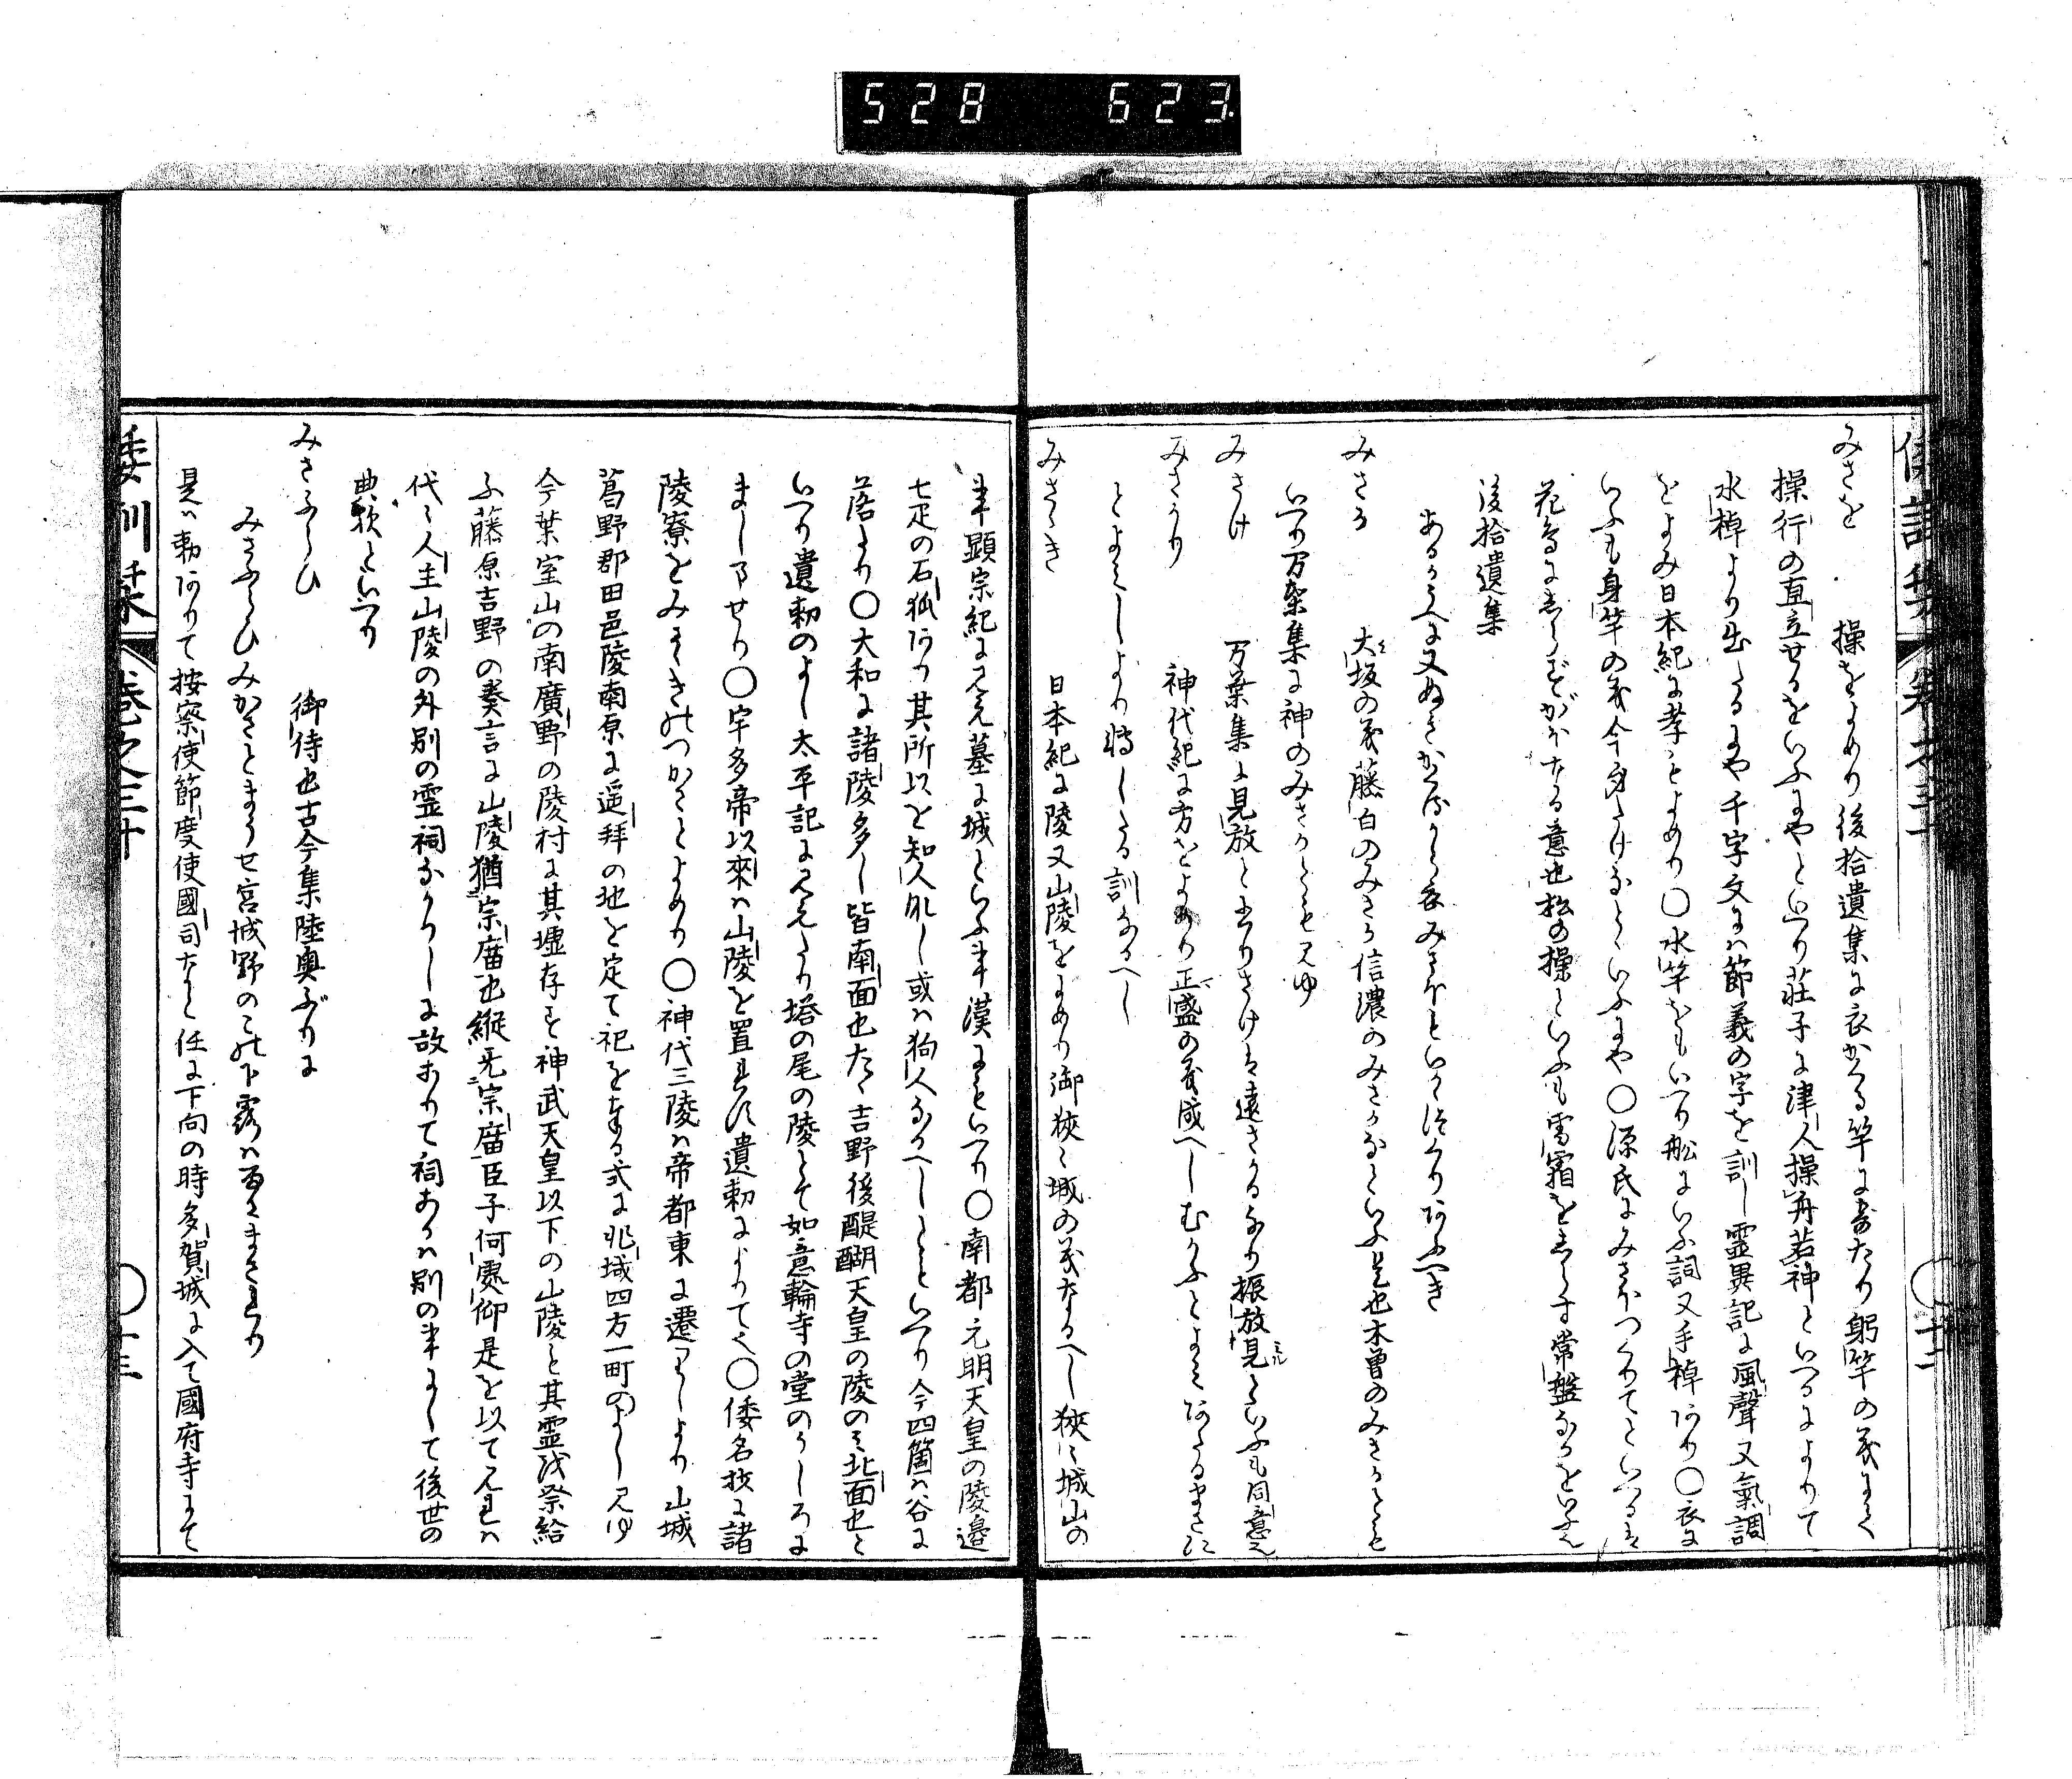 528 623.
みさを 操をよめり後拾遺集に衣かくる竿によせたり躬竿の義にて
操行の直立せるをいふにやといへり荘子に津人操舟若神といへるによりて
水棹より出たるにや千字文には節義の字を訓し霊異記に風聲又氣調
をよみ日本紀に孝をよめり〇水竿をもいへり舩にいふ詞又手棹あり〇衣に
いふも身竿の義今身たけなとゝいふにや〇源氏にみさをつくりてといへるは
花鳥にしらずがほなる意也松の操といふも雪霜をしらす常盤なるをいふ也
後拾遺集
あるうへに又ぬきかくるから衣みさをもいかゝつくりあふへき
みさか 大坂の義藤白のみさか信濃のみさかなといふ是也木曽のみさかとも
いへり万葉集に神のみさかとも見ゆ
みさけ 万葉集に見放と書りさけは遠さかる也振放見といふも同意也
みさかり 神代紀に方をよめり正盛の義成へしむかふとよみあたるまさに
とよみしより轉したる訓なるへし
みさゝき 日本紀に陵又山陵をよめり御狹々城の義なるへし狹々城山の
事顕宗紀に見え墓に城といふ事漢にもいへり〇南都元明天皇の陵邉
七疋の石狐あり其所以を知人なし或は狗人なるへしともいへり今四箇は谷に
落たり〇大和に諸陵多し皆南面也たゝ吉野後醍醐天皇の陵のみ北面也と
いへり遺勅のよし太平記に見えたり塔の尾の陵とて如意輪寺の堂のうしろに
ましませり〇宇多帝以來は山陵を置れす遺勅によりて也〇倭名抄に諸
陵寮をみさゝきのつかさとよめり〇神代三陵は帝都東に遷りしより山城
葛野郡田邑陵南原に遥拜の地を定て祀をなる式に兆域四方一町のよし見ゆ
今葉室山の南廣野の陵村に其墟存せり神武天皇以下の山陵と其霊を祭給
ふ藤原吉野の奏言に山陵猶宗廟也縦无宗廟臣子何處仰是を以て見れは
代々人主山陵の外別の霊祠なかりしに故ありて祠あるは別の事にして後世の
典歟といへり
みさふらひ 御侍也古今集陸奥ぶりに
みさふらひみかさとまうせ宮城野のこの下露は雨にまされり
是は勅ありて按察使節度使國司なと任に下向の時多賀城に入て國府寺にて
倭訓栞 巻之三十 〇十三